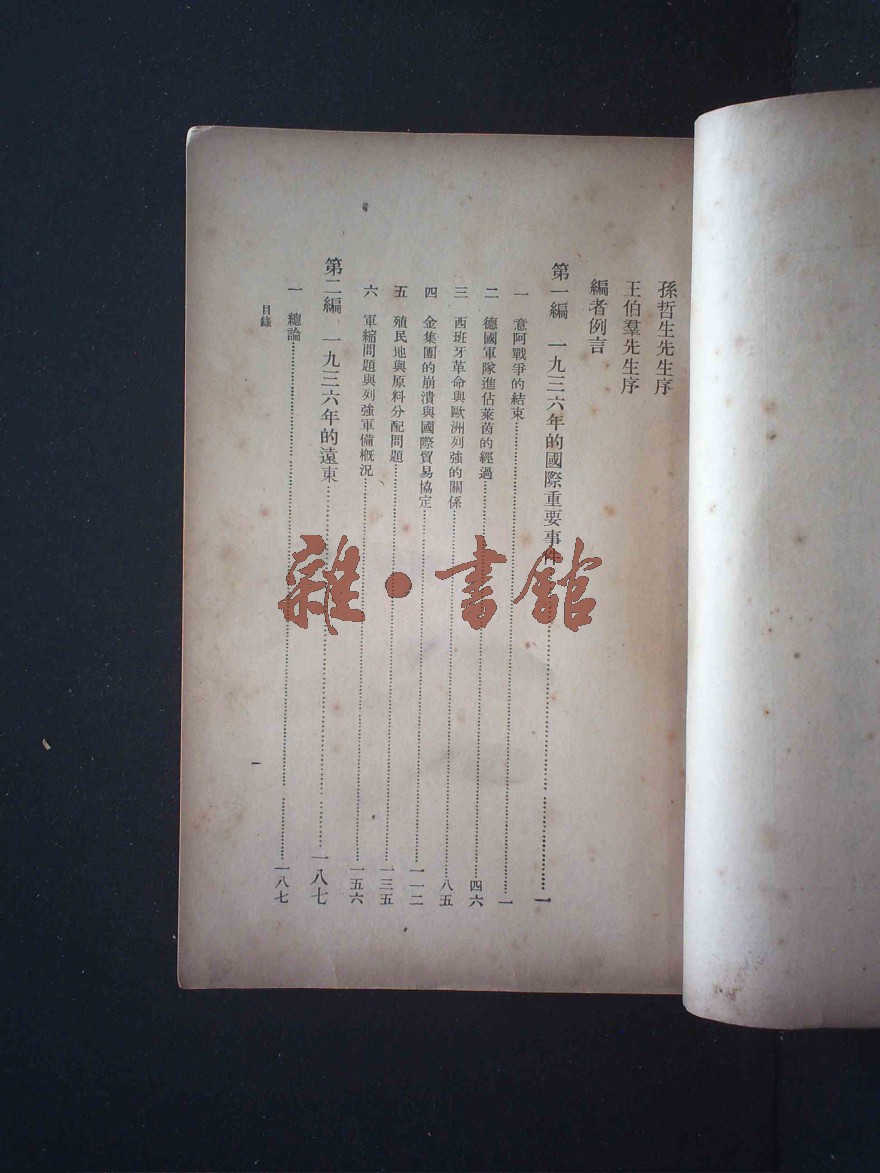 孫哲生先生序
王伯羣先生序
編者例言
第一編 一九三六年的國際重要事件……一
一 意阿戰爭的結束……一
二 德國軍隊進佔萊茵的經過……四六
三 西班牙革命與歐洲列強的關係……八五
四 金集團的崩潰與國際貿易協定……一一二
五 殖民地與原料分配問題……一三五
六 軍縮問題與列強軍備概況……一五六
第二編 一九三六年的遠東……一八七
一 總論……一八七
目錄
一
雜·書館